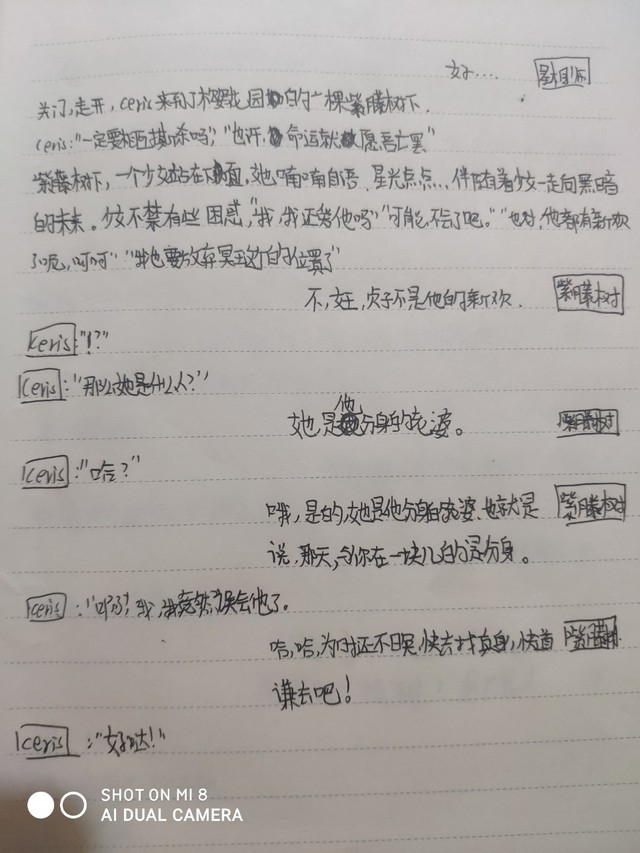 好... 星相师
关门,走开,ceris来到了樱花园的一棵紫藤树下.
ceris:"一定要相互撕杀吗","也许,命运就愿吾亡罢"
紫藤树下,一个少女站在下面,她喃喃自语、星光点点...伴随着少女走向黑暗
的未来。少女不禁有些困惑,"我,我还爱他吗""可能,不会了吧。""也对,他都有新欢
了呢,呵呵""我也要放弃冥王的位置了"
不,女王,贞子不是他的新欢. 紫藤树
Keris:"!?"
Keris:"那么她是什么人?"
她是他分身的老婆。 紫藤树
Keris:"哈?"
哦,是的,她是他分身的老婆、也就是 紫藤树
说,那天,与你在一块儿的是分身。
Keris:"我,我竟然误会他了。
哈,哈,为时还不晚,快去找真身,快道 紫藤树
谦去吧!
Keris:"好哒!"
SHOT ON MI 8
AI DUAL CAMERA